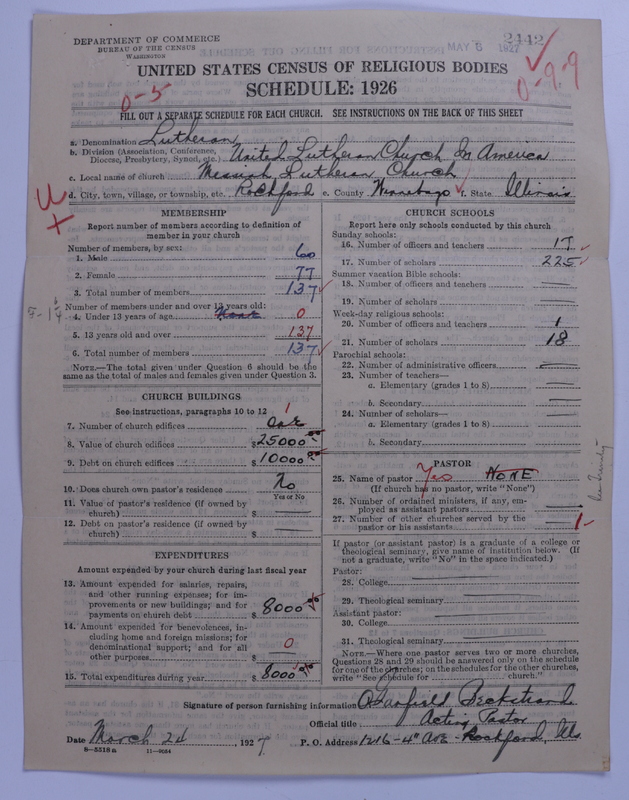 DEPARTMENT OF COMMERCE
BUREAU OF THE CENSUS
WASHINGTON
2442
MAY 3 1927
UNITED STATES CENSUS OF RELIGIOUS BODIES
SCHEDULE: 1926
0-5
0-9-9
FILL OUT A SEPARATE SCHEDULE FOR EACH CHURCH. SEE INSTRUCTIONS ON THE BACK OF THIS SHEET
a. Denomination Lutheran
b. Division (Association, Conference, Diocese, Presbytery, Synod, etc.) United Lutheran Church In America
c. Local name of church Messiah Lutheran Church
d. City, town, village, or township, etc. Rockford e. County Winnebago f. State Illinois
MEMBERSHIP
Report number of members according to definition of member in your church
Number of members, by sex:
1. Male 60
2. Female 77
3. Total number of members 137
Number of members under and over 13 years old:
4. Under 13 years of age None 0
5. 13 years old and over 137
6. Total number of members 137
NOTE.—The total given under Question 6 should be the same as the total of males and females given under Question 3.
CHURCH BUILDINGS
See instructions, paragraphs 10 to 12
7. Number of church edifices One 1
8. Value of church edifices $25000.00
9. Debt on church edifices $10000.00
10. Does church own pastor's residence No
Yes or No
11. Value of pastor's residence (if owned by church) $
12. Debt on pastor's residence (if owned by church) $
EXPENDITURES
Amount expended by your church during last fiscal year
13. Amount expended for salaries, repairs, and other running expenses; for improvements or new buildings; and for payments on church debt $8000.00
14. Amount expended for benevolences, including home and foreign missions; for denominational support; and for all other purposes $ 0
15. Total expenditures during year $8000.00
CHURCH SCHOOLS
Report here only schools conducted by this church
Sunday schools:
16. Number of officers and teachers 17
17. Number of scholars 225
Summer vacation Bible schools:
18. Number of officers and teachers
19. Number of scholars
Week-day religious schools:
20. Number of officers and teachers 1
21. Number of scholars 18
Parochial schools:
22. Number of administrative officers
23. Number of teachers—
a. Elementary (grades 1 to 8)
b. Secondary
24. Number of scholars—
a. Elementary (grades 1 to 8)
b. Secondary
PASTOR
25. Name of pastor Yes NONE
(If church has no pastor, write "None")
26. Number of ordained ministers, if any, employed as assistant pastors
27. Number of other churches served by the pastor or his assistants 1
If pastor (or assistant pastor) is a graduate of a college or theological seminary, give name of institution below. (If not a graduate, write "No" in the space indicated.)
Pastor:
28. College
29. Theological seminary
Assistant pastor:
30. College
31. Theological seminary
NOTE.—Where one pastor serves two or more churches, Questions 28 and 29 should be answered only on the schedule for one of the churches; on the schedules for the other churches, write "See schedule for church."
Signature of person furnishing information O Garfield Beckstrand
Official title Acting Pastor
Date March 24, 1927 P. O. Address 1216-4" Ave - Rockford, Ills
8—5518a 11—9054